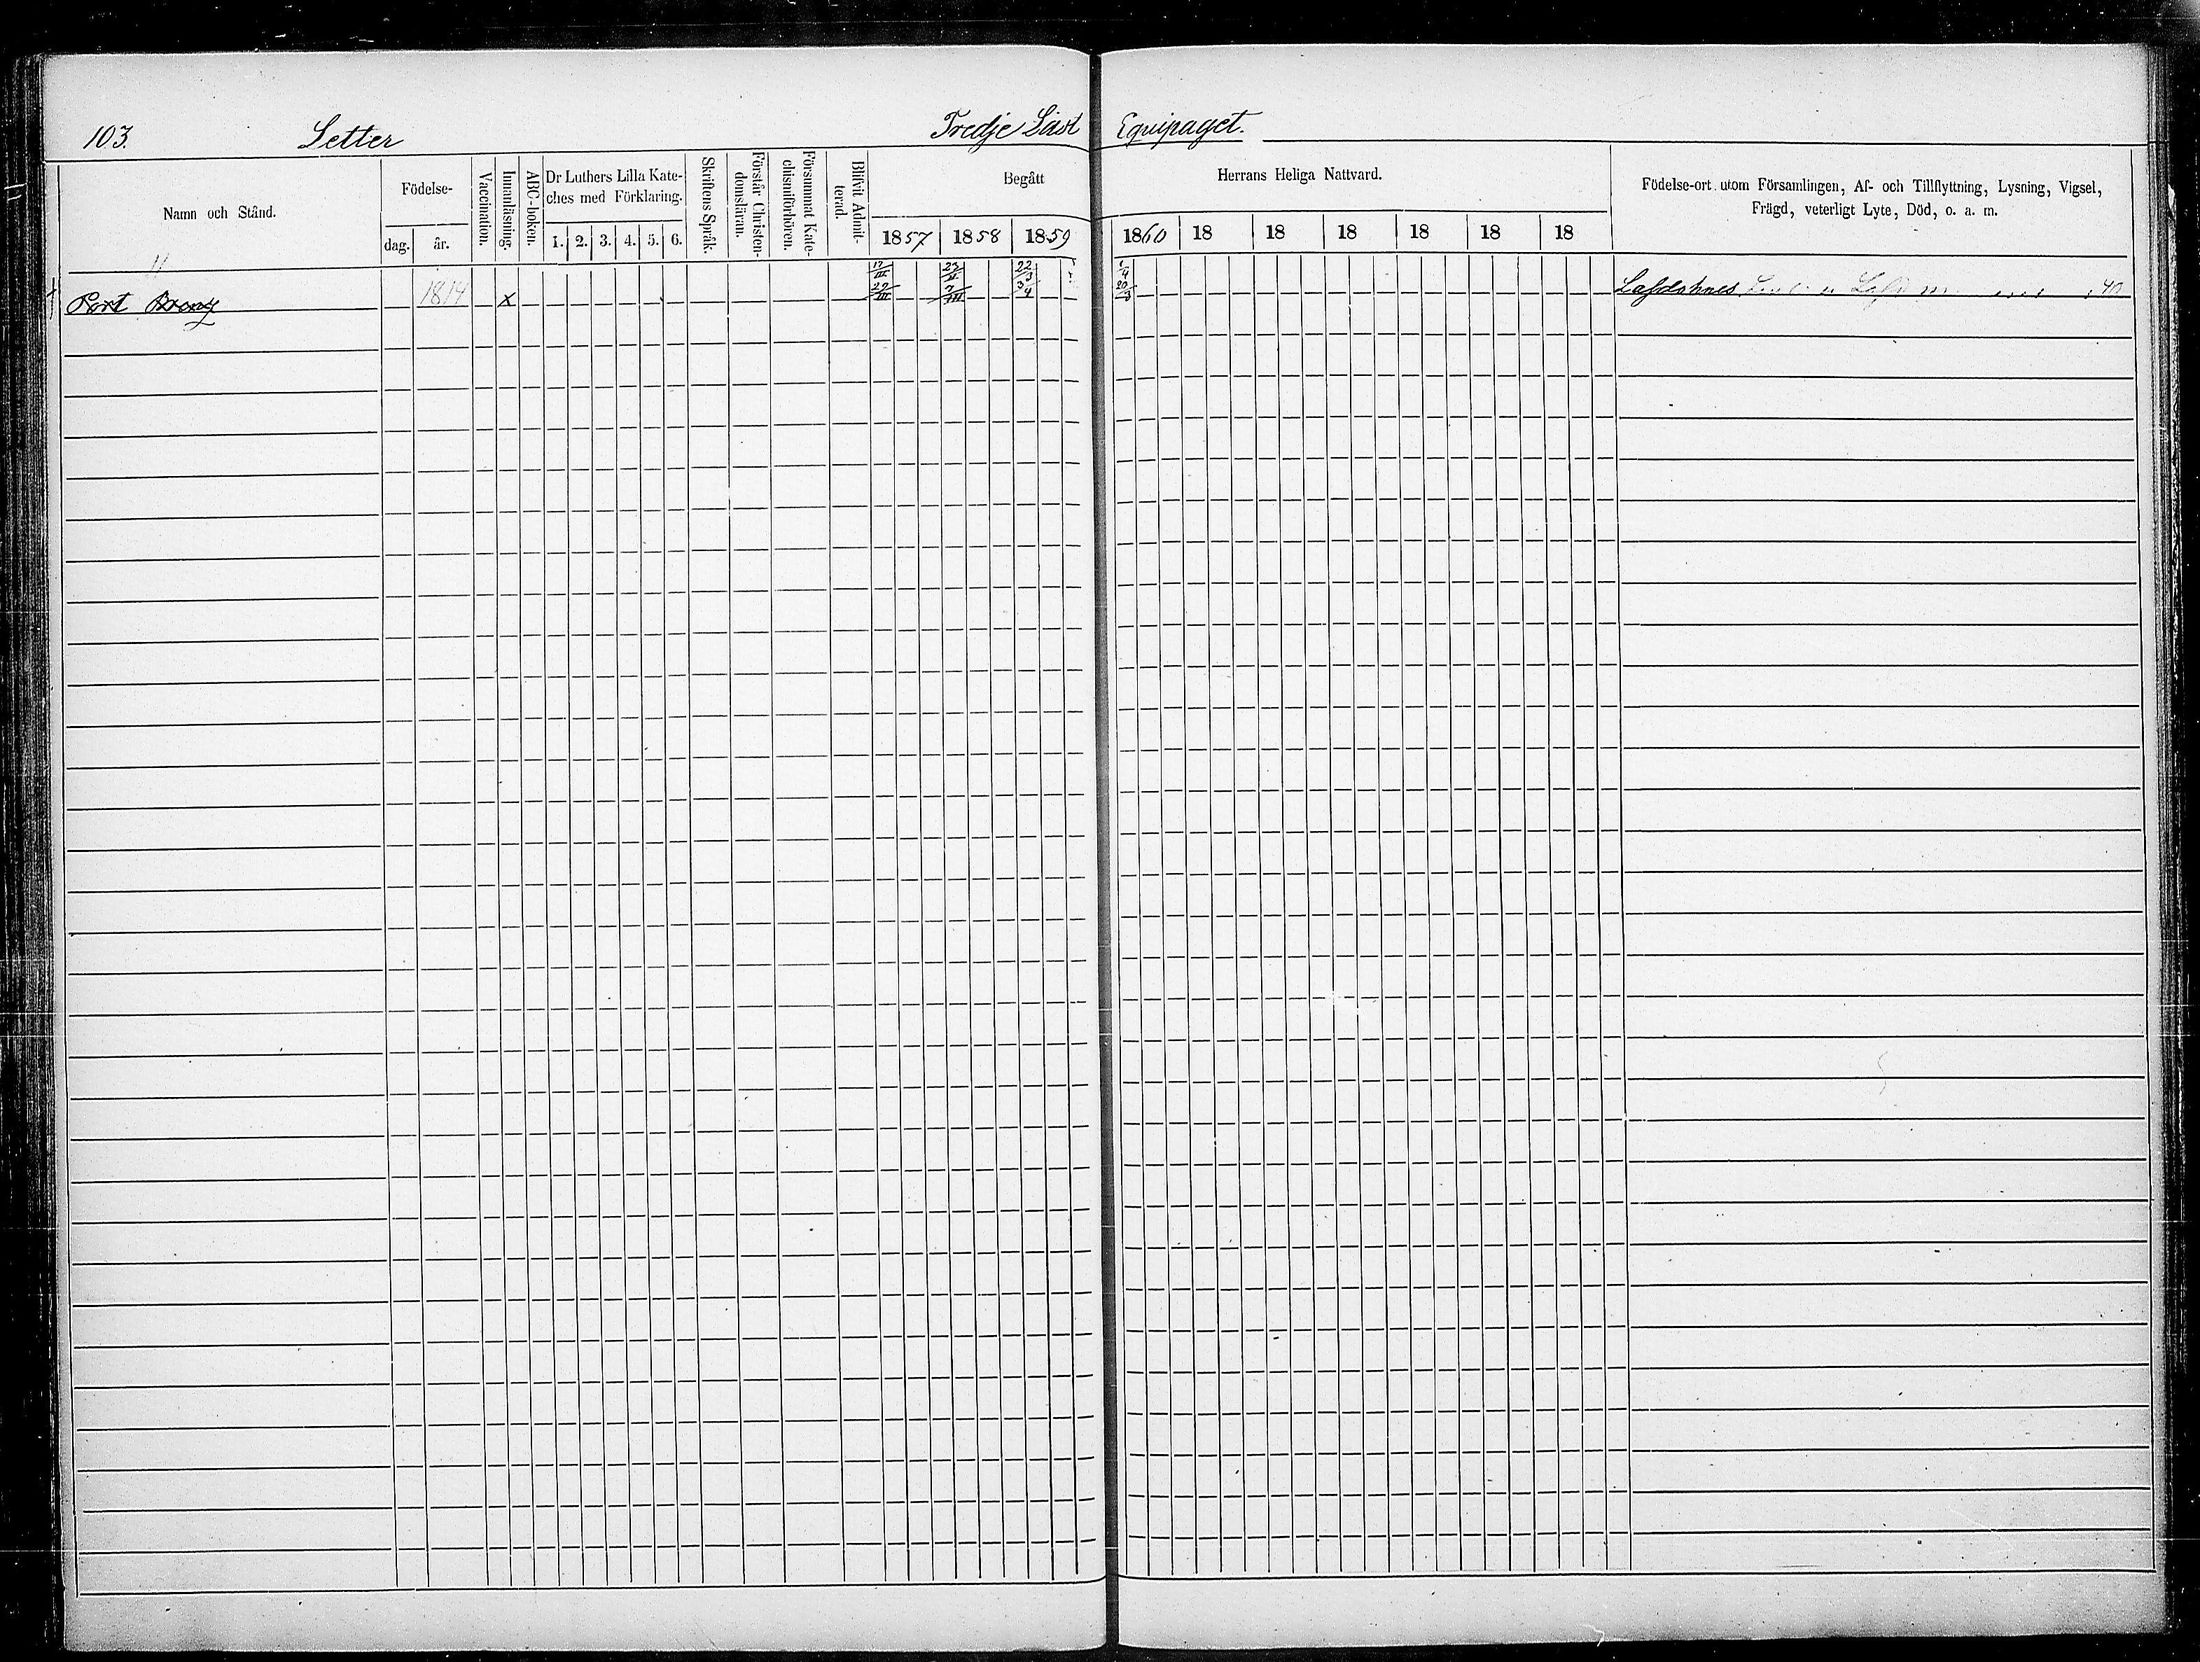 103. Setter Tredje Läst Equipaget.
Namn och Stånd.
Födelse-
dag. år.
Vaccination.
Innanläsning.
ABC-boken.
Dr Luthers Lilla Kate-
ches med Förklaring.
1. 2. 3. 4. 5. 6.
Skriftens Språk.
Förstår Christen-
domsläran.
Försummat Kate-
chismiförhören.
Blifvit Admit-
terad.
Begått Herrans Heliga Nattvard.
1857 1858 1859 1860 18 18 18 18 18 18
Födelse-ort utom Församlingen, Af- och Tillflyttning, Lysning, Vigsel,
Frägd, veterligt Lyte, Död, o. a. m.
1814 x